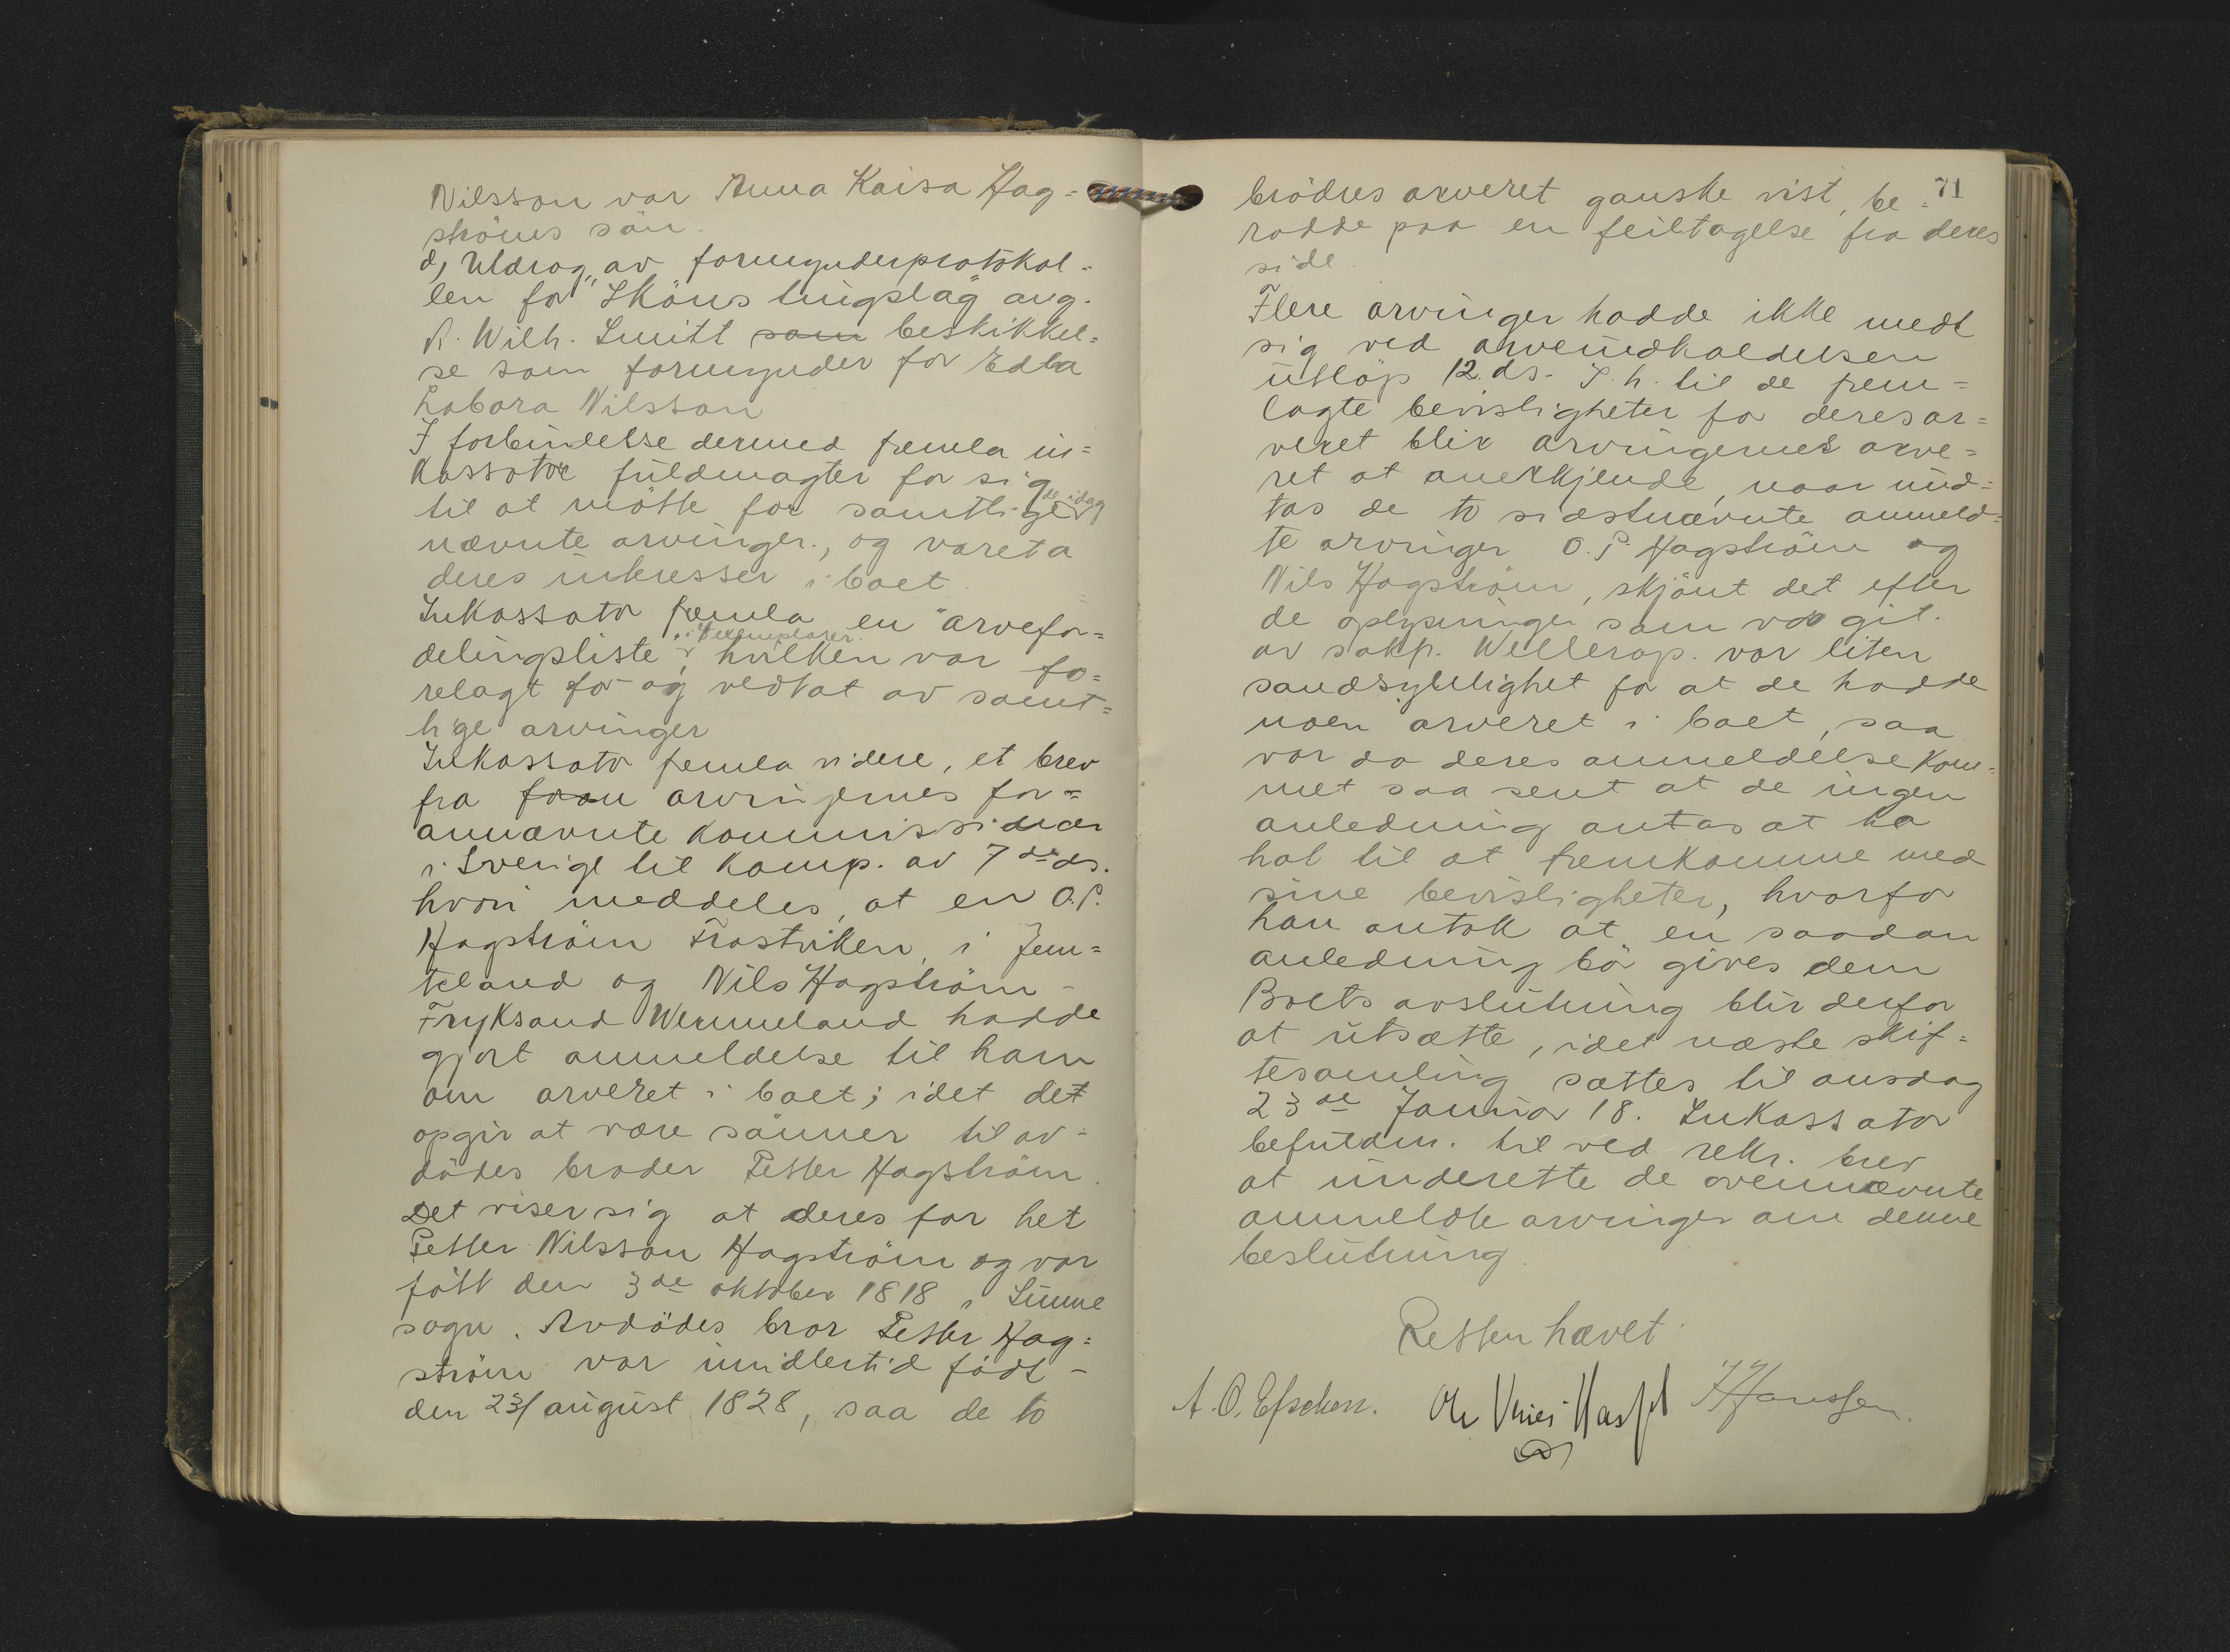 Nilsson var Anna Kaisa Hag=
ströms sön.
d, Utdrag av formynderprotokol=
len for "Sköns tingslag" ang.
R. Wilh. Smitt som beskikkel=
se som formynder for Edla
Nilsson
I forbindelse dermed fremla in=
kassator fuldmagter for sig
til at mötte for samtlige de idag
nævnte arvinger, og vareta
deres interesser i boet.
Inkassator fremla en arvefor=
delingsliste i 4 exemplarer, hvilken var fo=
relagt for og vedtat av samt=
lige arvinger
Inkassator fremla videre, et brev
fra foran arvingernes for=
annævnte kommissionær
i Sverige til komp. av 7de ds.
hvori meddeles, at en O.P.
Hagström Frostviken i Jem=
teland og Nils Hagström -
Fryksand Wermeland hadde
gjort anmeldelse til ham
om arveret i boet; idet det
opgir at være sönner til av=
dödes broder Petter Hagström.
Det viser sig at deres far het
Petter Nilsson Hagström og var
født den 3de oktober 1818 i Sunne
sogn. Avdödes bror Petter Hag=
ström var imidlertid födt -
den 23/ august 1828, saa de to
71
brödres arveret ganske vist, be=
rodde paa en feiltagelse fra deres
side.
Flere arvinger hadde ikke meldt
sig ved
utlöp 12. ds. I h. til de frem=
lagte bevisligheter for deres ar=
veret blir arvingernes arve=
ret at anerkjende, naar und=
tas de to sidstnævnte anmeld=
te arvinger O.P. Hagström og
Nils Hagström, skjönt det efter
de oplysninger som var git.
av sakf. Wellerop. var liten
sandsynlighet for at de hadde
noen arveret i boet, saa
var da deres anmeldelse kom=
met saa sent at de ingen
anledning antas at ha
hat til at fremkomme med
sine bevisligheter, hvorfor
han antok at en saadan
anledning bör gives dem
Boets avslutning blir derfor
at utsætte, idet næste skif=
tesamling sættes til onsdag
23de Januar 18. Inkassator
befuldm. til ved rek. brev
at underrette de ovennævnte
anmeldte arvinger om denne
beslutning
Retten hævet.
A. O. Efskin. Hanssen.